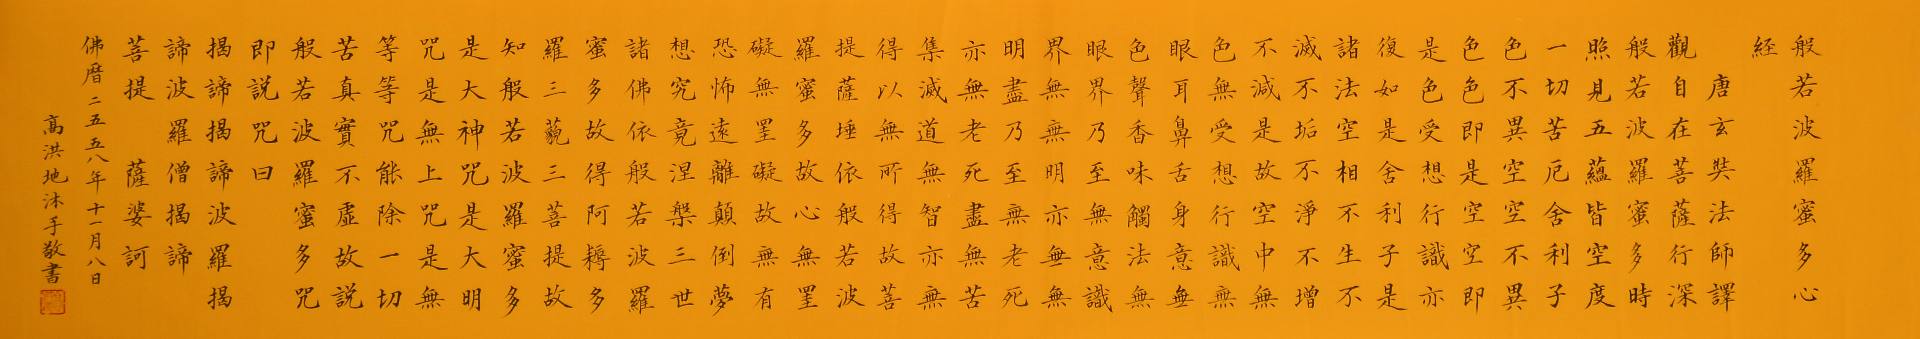 般若波羅蜜多心
経
唐玄奘法師譯
觀自在菩薩行深
般若波羅蜜多時
照見五蘊皆空度
一切苦厄舍利子
色不異空空不異
色色即是空空即
是色受想行識亦
復如是舍利子是
諸法空相不生不
滅不垢不淨不增
不減是故空中無
色無受想行識無
眼耳鼻舌身意無
色聲香味觸法無
眼界乃至無意識
界無無明亦無無
明盡乃至無老死
亦無老死盡無苦
集滅道無智亦無
得以無所得故菩
提薩埵依般若波
羅蜜多故心無罣
礙無罣礙故無有
恐怖遠離顛倒夢
想究竟涅槃三世
諸佛依般若波羅
蜜多故得阿耨多
羅三藐三菩提故
知般若波羅蜜多
是大神咒是大明
咒是無上咒是無
等等咒能除一切
苦真實不虛故説
般若波羅蜜多咒
即説咒曰
揭諦揭諦波羅揭
諦波羅僧揭諦
菩提 薩婆訶
佛曆二五五八年十一月八日
高洪地沐手敬書